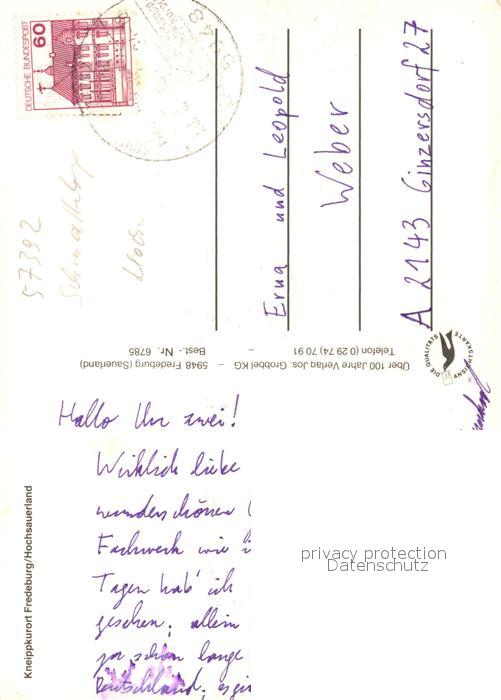 DEUTSCHE BUNDESPOST
60
5948
57392
Erna und Leopold
Weber
A 2143 Ginzersdorf 27
Über 100 Jahre Verlag Jos. Grobbel KG – 5948 Fredeburg (Sauerland)
Telefon (0 29 74) 70 91 – Best.- Nr. 6785
DIE QUALITÄTS
ANSICHTSKARTE
Kneippkurort Fredeburg/Hochsauerland
Hallo Ihr zwei!
Wirklich liebe
wunderschönen
Fachwerk wie
Tagen hab' ich
gesehen; allein
schon lange
Deutschland;
privacy protection
Datenschutz